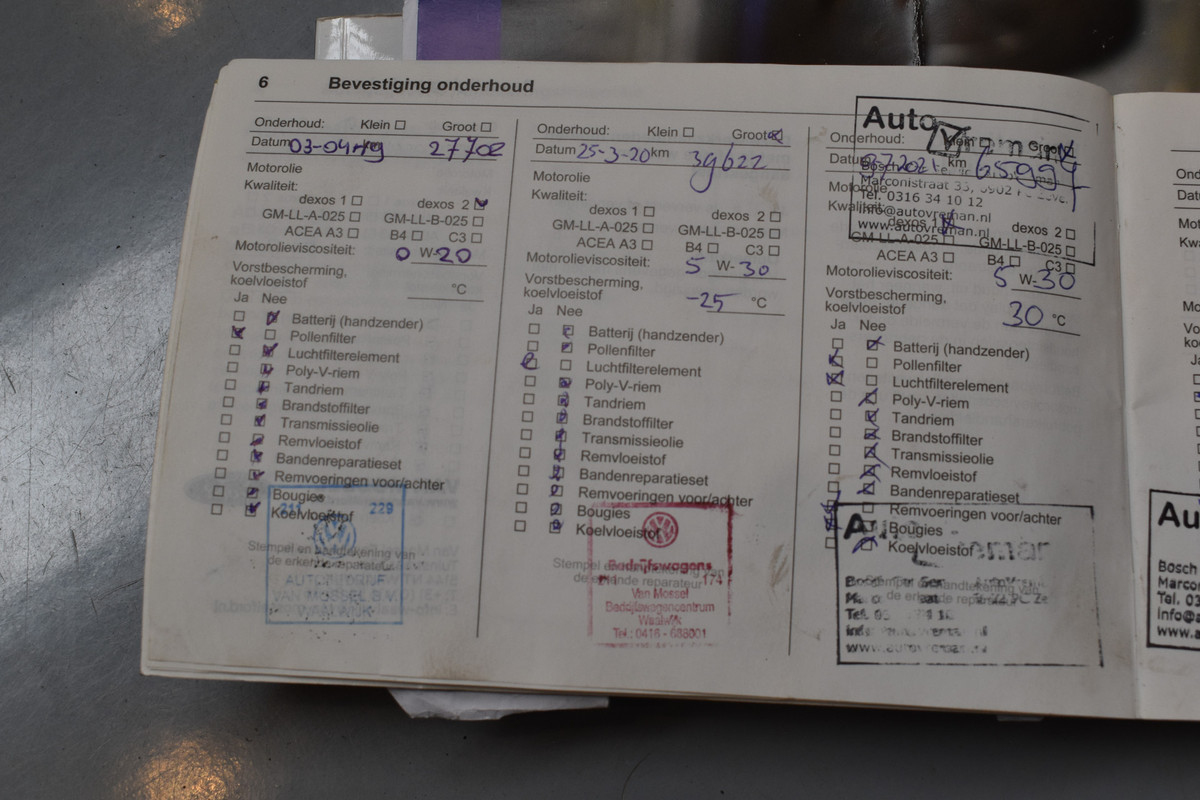 6 Bevestiging onderhoud
Onderhoud: Klein Groot
Datum 03-04-19 km 27702
Motorolie
Kwaliteit:
dexos 1 dexos 2
GM-LL-A-025 GM-LL-B-025
ACEA A3 B4 C3
Motorolieviscositeit: 0 W- 20
Vorstbescherming,
koelvloeistof °C
Ja Nee
Batterij (handzender)
Pollenfilter
Luchtfilterelement
Poly-V-riem
Tandriem
Brandstoffilter
Transmissieolie
Remvloeistof
Bandenreparatieset
Remvoeringen voor/achter
Bougies
Koelvloeistof
Stempel en handtekening van
de erkende reparateur
211 229
Onderhoud: Klein Groot
Datum 25-3-20 km 39622
Motorolie
Kwaliteit:
dexos 1 dexos 2
GM-LL-A-025 GM-LL-B-025
ACEA A3 B4 C3
Motorolieviscositeit: 5 W- 30
Vorstbescherming,
koelvloeistof -25 °C
Ja Nee
Batterij (handzender)
Pollenfilter
Luchtfilterelement
Poly-V-riem
Tandriem
Brandstoffilter
Transmissieolie
Remvloeistof
Bandenreparatieset
Remvoeringen voor/achter
Bougies
Koelvloeistof
Stempel en handtekening van
de erkende reparateur
Bedrijfswagens
174
Van Mossel
Bedrijfswagencentrum
Waalwijk
Tel.: 0416 - 688001
Onderhoud: Klein Groot
Datum km 65994
Motorolie
Kwaliteit:
dexos 1 dexos 2
GM-LL-A-025 GM-LL-B-025
ACEA A3 B4 C3
Motorolieviscositeit: 5 W- 30
Vorstbescherming,
koelvloeistof 30 °C
Ja Nee
Batterij (handzender)
Pollenfilter
Luchtfilterelement
Poly-V-riem
Tandriem
Brandstoffilter
Transmissieolie
Remvloeistof
Bandenreparatieset
Remvoeringen voor/achter
Bougies
Koelvloeistof
Auto Vreman
Marconistraat 33,
Tel. 0316 34 10 12
info@autovreman.nl
www.autovreman.nl